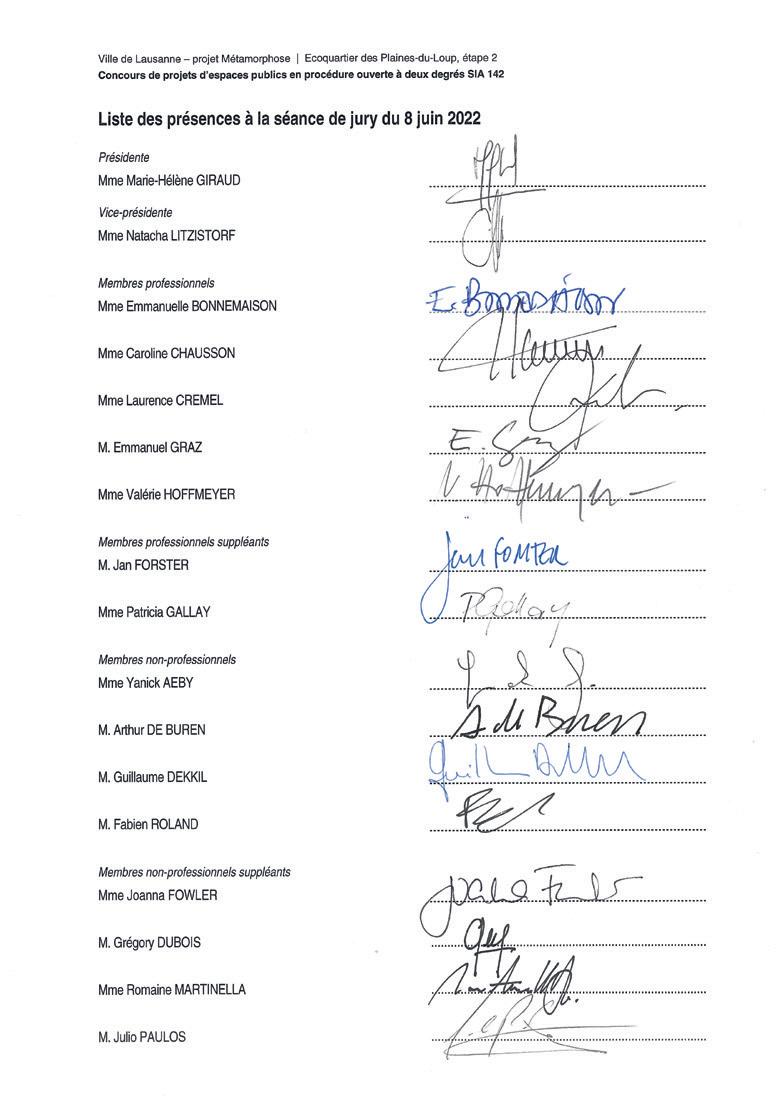 Ville de Lausanne – projet Métamorphose | Ecoquartier des Plaines-du-Loup, étape 2
Concours de projets d'espaces publics en procédure ouverte à deux degrés SIA 142
Liste des présences à la séance de jury du 8 juin 2022
Présidente
Mme Marie-Hélène GIRAUD
Vice-présidente
Mme Natacha LITZISTORF
Membres professionnels
Mme Emmanuelle BONNEMAISON
Mme Caroline CHAUSSON
Mme Laurence CREMEL
M. Emmanuel GRAZ
Mme Valérie HOFFMEYER
Membres professionnels suppléants
M. Jan FORSTER
Mme Patricia GALLAY
Membres non-professionnels
Mme Yanick AEBY
M. Arthur DE BUREN A de Buren
M. Guillaume DEKKIL
M. Fabien ROLAND
Membres non-professionnels suppléants
Mme Joanna FOWLER
M. Grégory DUBOIS
Mme Romaine MARTINELLA
M. Julio PAULOS